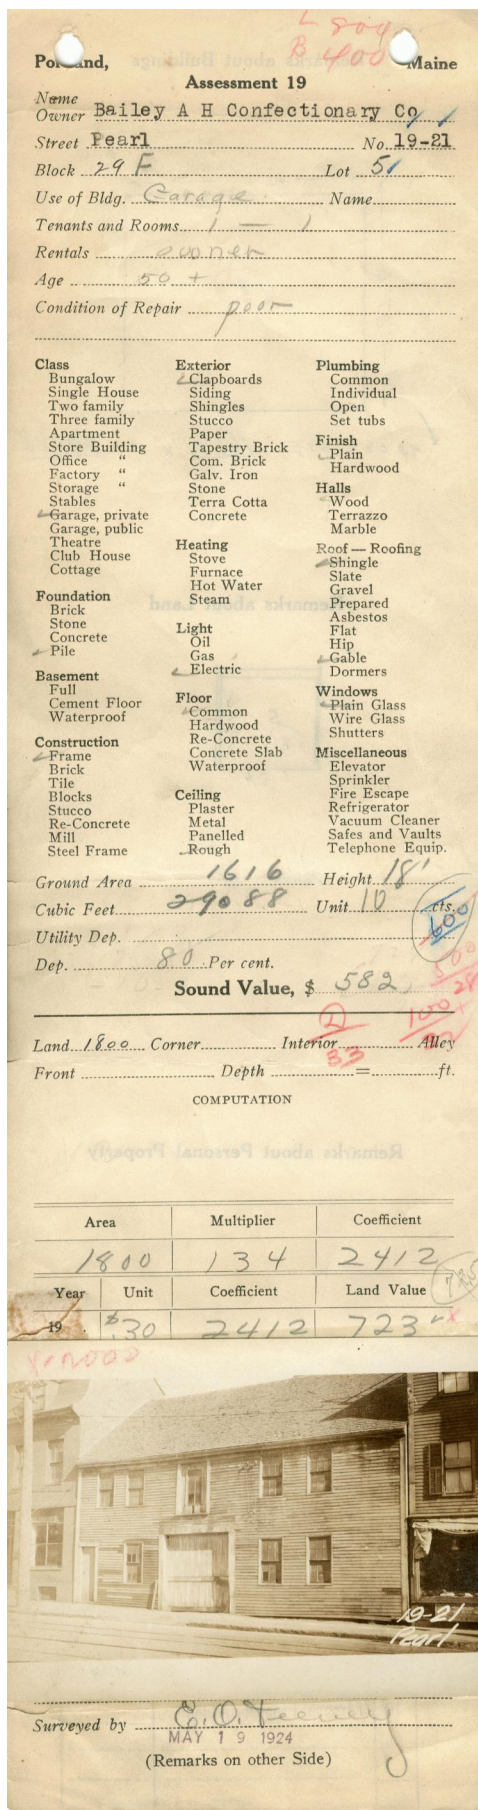 L 800
B 400
Portland, Maine
Assessment 19
Name
Owner Bailey A H Confectionary Co
Street Pearl No. 19-21
Block 29 F Lot 5
Use of Bldg. Garage Name
Tenants and Rooms 1 — 1
Rentals owner
Age 50 +
Condition of Repair poor
Class
Bungalow
Single House
Two family
Three family
Apartment
Store Building
Office "
Factory "
Storage "
Stables
Garage, private
Garage, public
Theatre
Club House
Cottage
Foundation
Brick
Stone
Concrete
Pile
Basement
Full
Cement Floor
Waterproof
Construction
Frame
Brick
Tile
Blocks
Stucco
Re-Concrete
Mill
Steel Frame
Exterior
Clapboards
Siding
Shingles
Stucco
Paper
Tapestry Brick
Com. Brick
Galv. Iron
Stone
Terra Cotta
Concrete
Heating
Stove
Furnace
Hot Water
Steam
Light
Oil
Gas
Electric
Floor
Common
Hardwood
Re-Concrete
Concrete Slab
Waterproof
Ceiling
Plaster
Metal
Panelled
Rough
Plumbing
Common
Individual
Open
Set tubs
Finish
Plain
Hardwood
Halls
Wood
Terrazzo
Marble
Roof — Roofing
Shingle
Slate
Gravel
Prepared
Asbestos
Flat
Hip
Gable
Dormers
Windows
Plain Glass
Wire Glass
Shutters
Miscellaneous
Elevator
Sprinkler
Fire Escape
Refrigerator
Vacuum Cleaner
Safes and Vaults
Telephone Equip.
Ground Area 1616 Height 18'
Cubic Feet 29088 Unit 10 cts.
600
Utility Dep.
Dep. 80 Per cent.
Sound Value, $ 582
Land 1800 Corner Interior Alley
33
Front Depth = ft.
COMPUTATION
Area Multiplier Coefficient
1800 134 2412
Year Unit Coefficient Land Value
19 $.30 2412 723
19-21
Pearl
Surveyed by E. O. Feeney
MAY 19 1924
(Remarks on other Side)